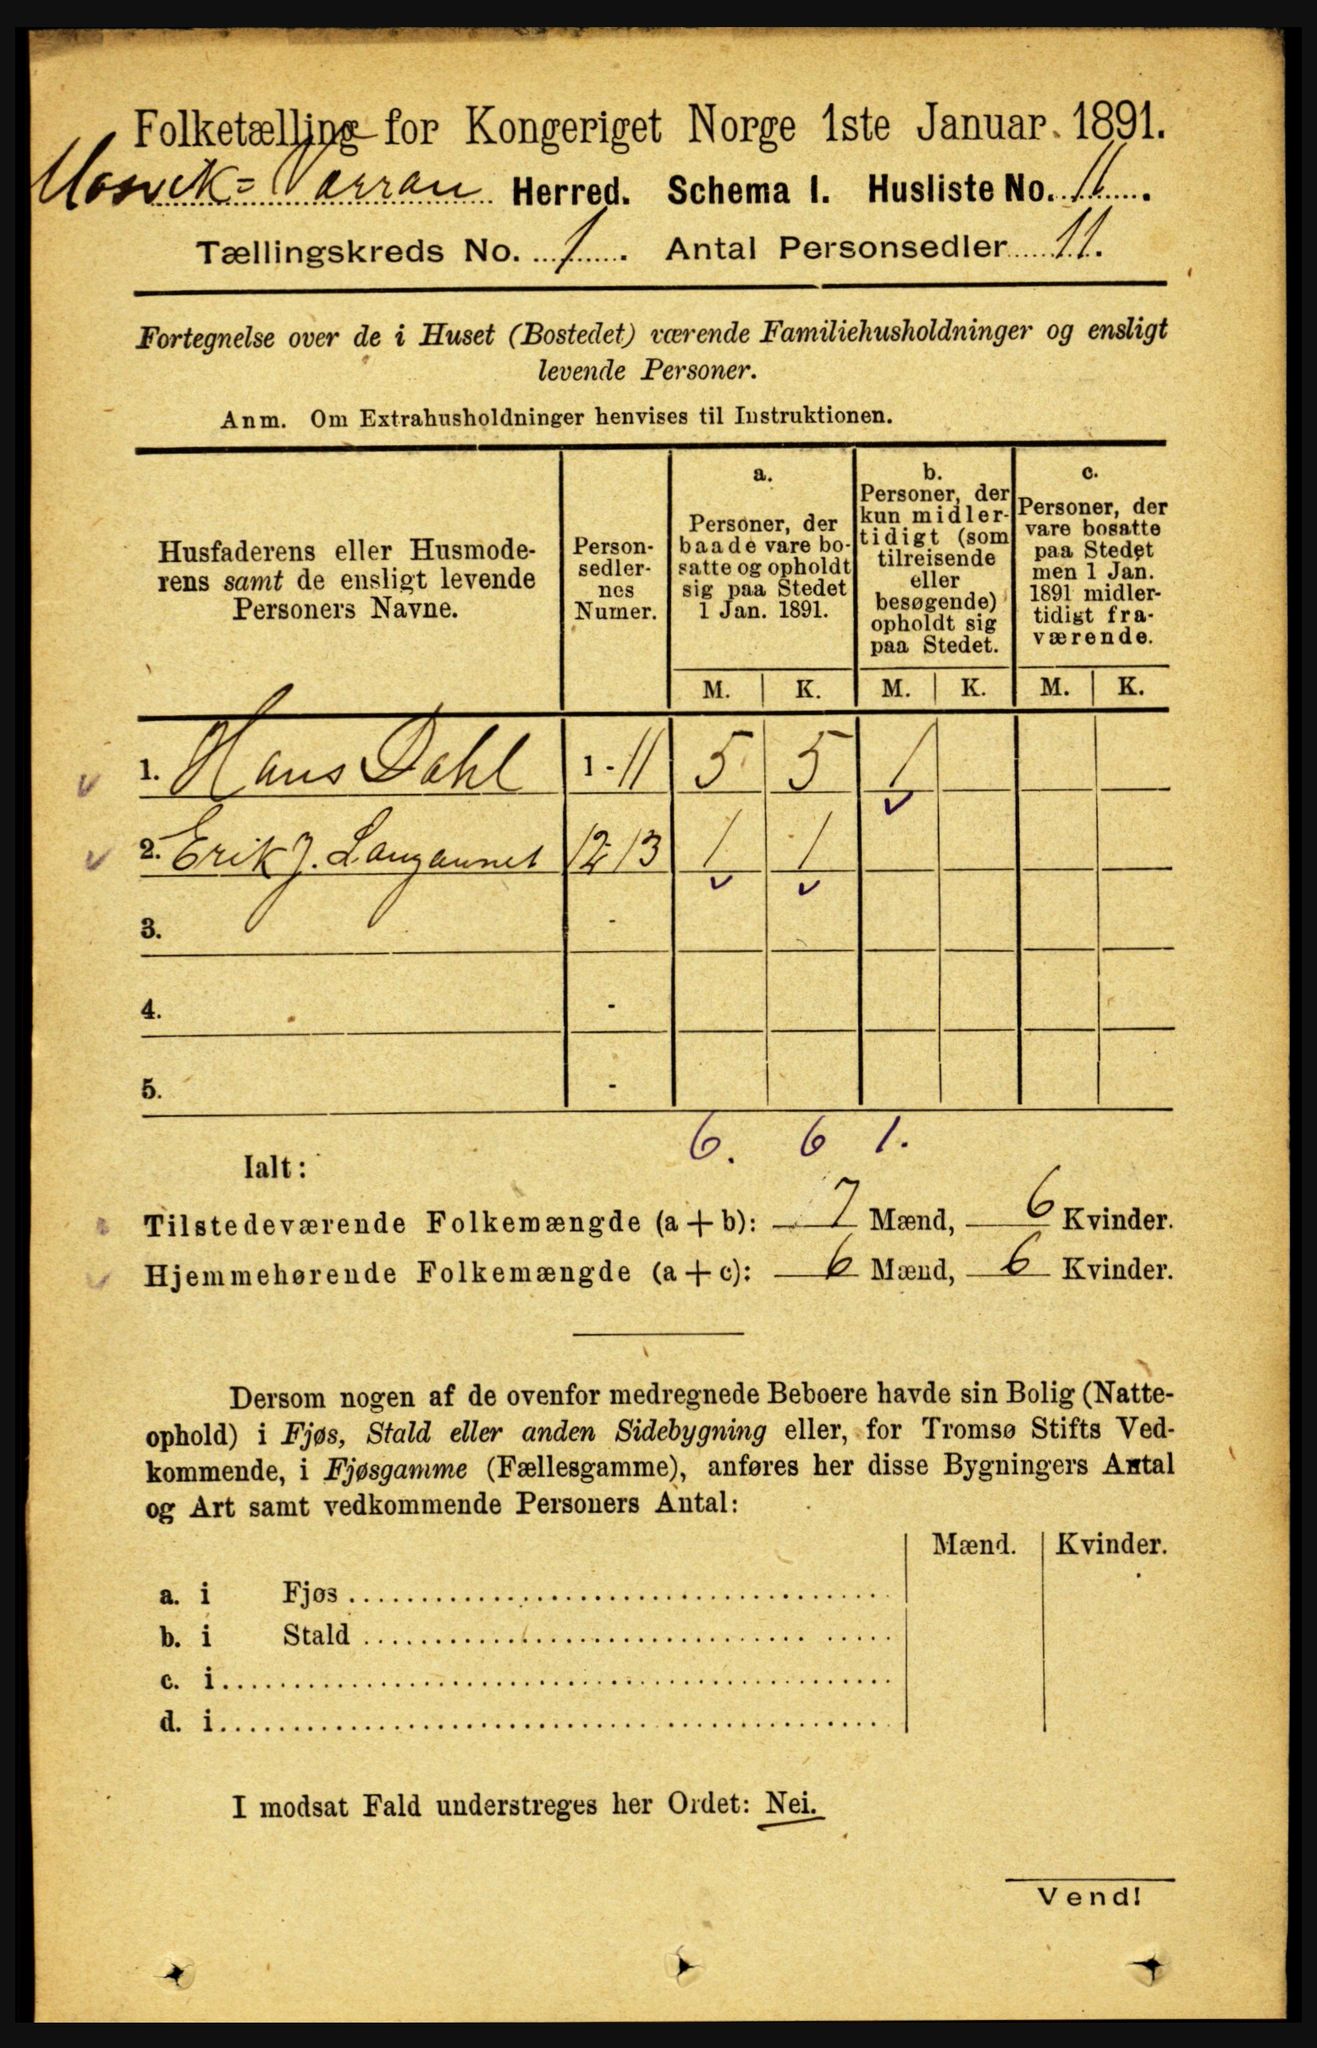 Folketælling for Kongeriget Norge 1ste Januar 1891.
Mosvik = Værran Herred. Schema I. Husliste No. 11.
Tællingskreds No. 1. Antal Personsedler 11.
Fortegnelse over de i Huset (Bostedet) værende Familiehusholdninger og ensligt
levende Personer.
Anm. Om Extrahusholdninger henvises til Instruktionen.
Husfaderens eller Husmode-
rens samt de ensligt levende
Personers Navne.
Person-
sedler-
nes
Numer.
a.
Personer, der
baade vare bo-
satte og opholdt
sig paa Stedet
1 Jan. 1891.
b.
Personer, der
kun midler-
tidigt (som
tilreisende
eller
besøgende)
opholdt sig
paa Stedet.
c.
Personer, der
vare bosatte
paa Stedet
men 1 Jan.
1891 midler-
tidigt fra-
værende.
M. K. M. K. M. K.
1. Hans Dahl 1 - 11 5 5 1
2. Erik J. 12-13 1 1
3. -
4. -
5. -
6. 6 1.
Ialt:
Tilstedeværende Folkemængde (a + b): 7 Mænd, 6 Kvinder.
Hjemmehørende Folkemængde (a + c): 6 Mænd, 6 Kvinder.
Dersom nogen af de ovenfor medregnede Beboere havde sin Bolig (Natte-
ophold) i Fjøs, Stald eller anden Sidebygning eller, for Tromsø Stifts Ved-
kommende, i Fjøsgamme (Fællesgamme), anføres her disse Bygningers Antal
og Art samt vedkommende Personers Antal:
Mænd. Kvinder.
a. i Fjøs
b. i Stald
c. i
d. i
I modsat Fald understreges her Ordet: Nei.
Vend!